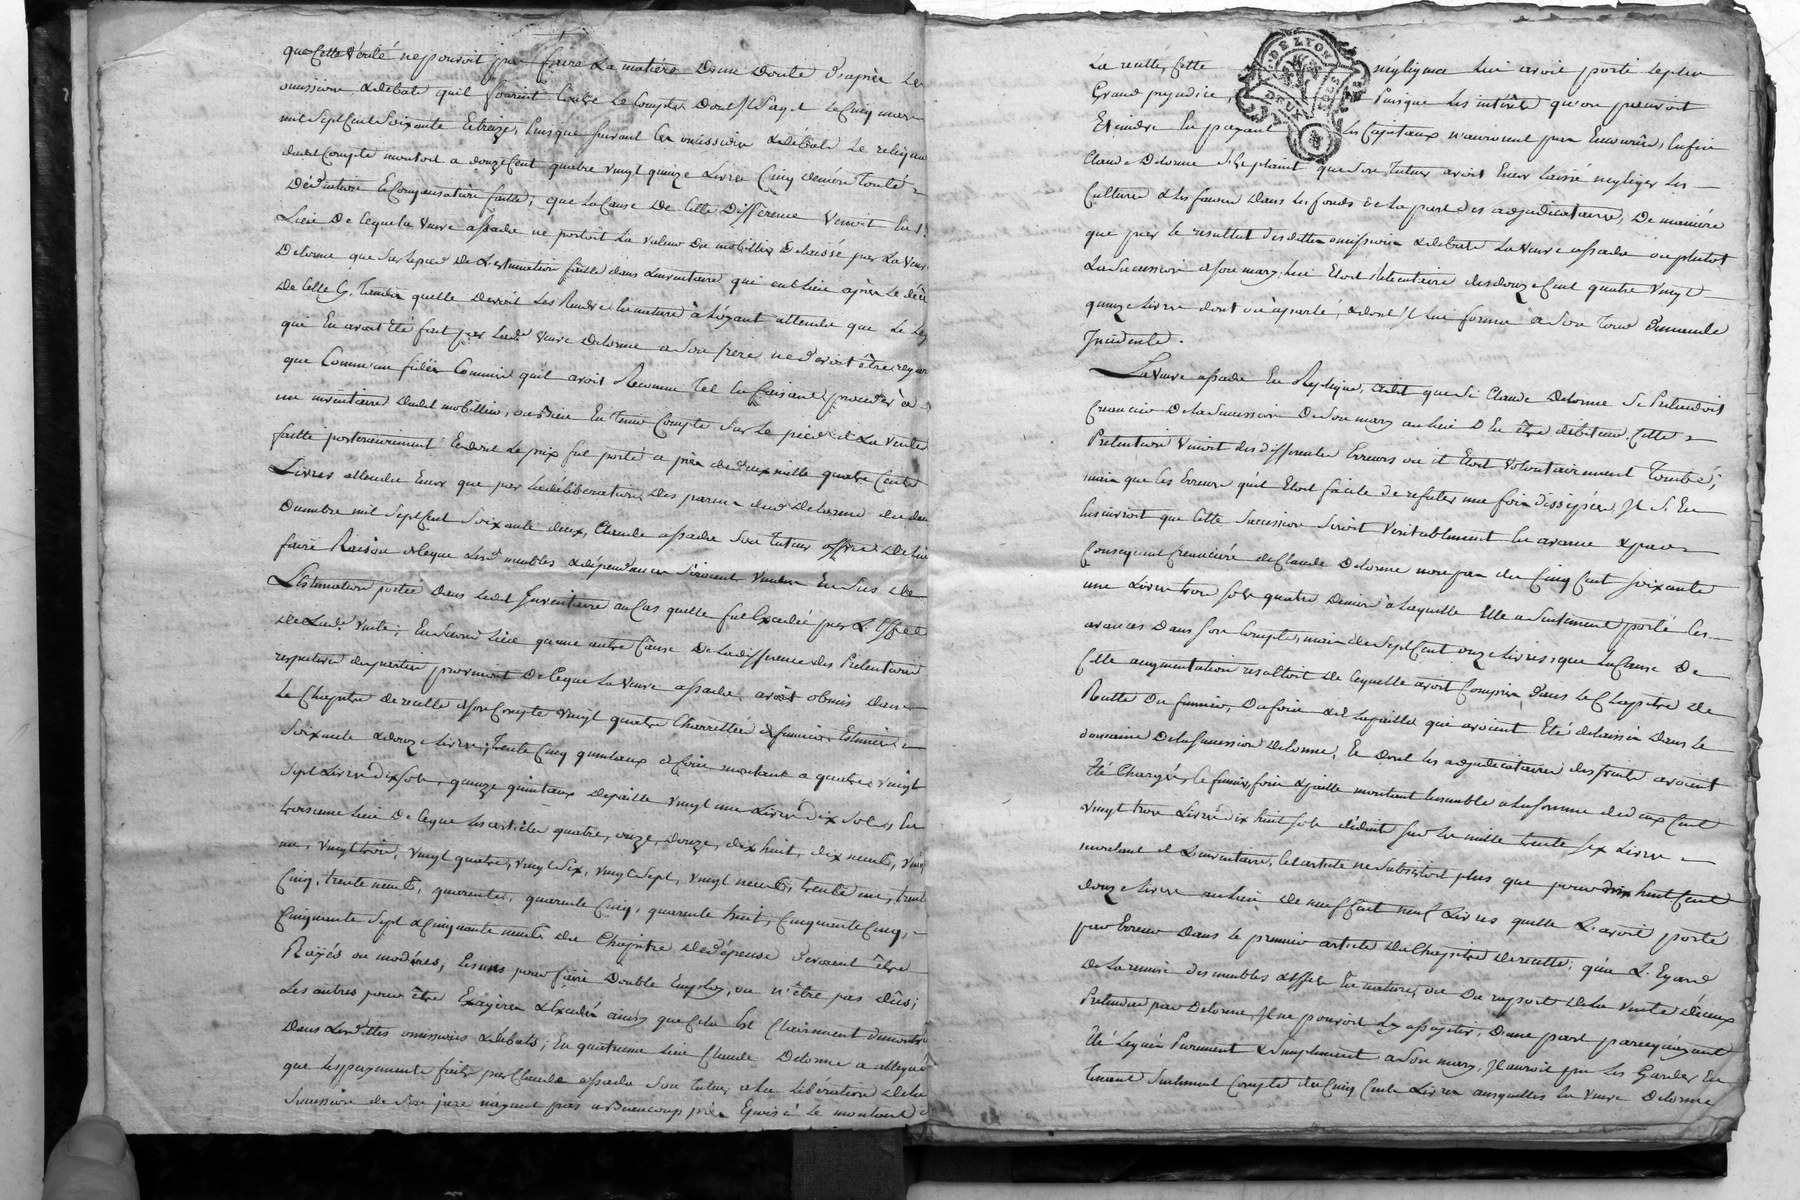 que Cette Vérité ne pouvoit pas faire La matiere D'une Doute D'après Les
omissions & débats quil fournit Contre Le Compte Dont il s'agit Le Cinq mars
mil Sept Cent Soixante Et treize, Puisque suivant les omissions & débats Le reliqua
dudit Compte montoit a douze Cent quatre vingt quinze Livres Cinq deniers toute
Déduction & Compensation faitte; que La Cause De Cette Différence Venoit En 1.er
Lieu De Ceque La Veuve assada ne portoit La valeur Du mobillier Delaissé par La Veuve
Delorme que Sur Le pied De L'estimation faitte dans L'inventaire qui eut Lieu après Le décès
De Celle Cy, Tandis quelle Devoit Les Rendre En nature à L'oyant attendu que Le Legs
qui En avoit Eté fait par Lad. Veuve Delorme a Son frère ne devoit être regardé
que Comme un fidéi Commis quil avoit Reconnu Tel En faisant proceder à
un inventaire dudit mobillier, ou bien En Tenir Compte Sur Le pied de La Vente
faitte posterieurement Et dont Le prix fut porté a près de deux mille quatre Cents
Livres attendu Encor que par La délibération Des parens dud. Delorme du deux
Decembre mil Sept Cent Soixante deux, Claude assada Son Tuteur offrit De Lui
faire Raison de Ceque Lesd. meubles & dépendances Seroient Vendus En Sus de
L'Estimation portée Dans Ledit Inventaire au Cas quelle fut Excedée par L'Effet
de Lad. Vente; En Second Lieu qu'une autre Cause De La difference des Pretentions
respectives des parties provenoit De Ceque La Veuve assada avoit obmis dans
Le Chapitre de recette de Son Compte Vingt quatre Charrettées de fumier Estimées
Soixante & douze Livres; Trente Cinq quintaux de foin montant a quatre vingt
Sept Livres dix Sols, quinze quintaux de paille vingt une Livres Dix Sols, En
troisieme Lieu De Ceque Les articles quatre, onze, douze, dix huit, dix neuf, vingt
un, vingt trois, vingt quatre, vingt Six, vingt Sept, vingt neuf, trente un, trente
Cinq, trente neuf, quarante, quarante Cinq, quarante huit, Cinquante Cinq,
Cinquante Sept & Cinquante neuf du Chapitre de dépense devoient être
Rayés ou modérés, Les uns pour faire Double Employ, ou n'être pas dûs;
Les autres pour être Exagérés & Excedés ainsi que Cela Est Clairement démontré
Dans Lesdittes omissions & débats; En quatrieme Lieu Claude Delorme a allegué
que Les payements faits par Claude assada Son Tuteur a La Libération de La
Succession de Son pere n'ayant pas a Beaucoup près Epuisé Le montant de
La recette, Cette négligence Lui avoit porté Le plus
Grand prejudice, Puisque Les intérêts qu'on pouvoit
Eteindre En payant Les Capitaux n'auroient pas Encourûs, Enfin
Claude Delorme Se plaint que Son Tuteur avoit Encor Laissé négliger Les
Culture & Les faucis Dans Les fonds de La part des adjudicataires, De maniere
que par le resultat desdittes omissions & debats La Veuve assada ou plutot
La Succession de Son mary, Lui Etoit rétentaire des douze Cent quatre Vingt
quinze Livres dont on a parlé, & dont il Lui forma a Son Tour Demande
Incidente.
La Veuve assada En Replique, a dit que Si Claude Delorme Se Pretendoit
Creancier De La Succession De Son mary au Lieu D'En être debiteur, Cette
Pretention Venoit des differentes Erreurs ou il Etoit Volontairement Tombé;
mais que Ces Erreurs qu'il Etoit facile de refuter une fois dissipées, Il S'En
Suivroit que Cette Succession Seroit Veritablement En avance & par
Consequent Creanciere de Claude Delorme non pas de Cinq Cent Soixante
une Livres trois Sols quatre Deniers à Laquelle Elle a Seulement porté Les
avances Dans Son Compte, mais de Sept Cent onze Livres; que La Cause De
Cette augmentation resultoit De Cequelle avoit Compris Dans Le Chapitre de
Recette Du fumier, Du foin & de La paille qui avoient Eté delaissés Dans Le
domaine De La Succession Delorme, Et Dont Les adjudicataires des fruits avoient
Eté Chargés, Ce fumier, foin & paille montant Ensemble a La Somme de deux Cent
Vingt trois Livres Dix huit Sols déduits Sur Les mille trente Six Livres
montant de L'inventaire, Cet article ne Subsistoit plus que pour huit Cent
douze Livres au Lieu De neuf Cent neuf Livres quelle L'avoit porté
par Erreur Dans le premier article du Chapitre de recette; qu'a L'Egard
De La remise des meubles & Effets En nature, ou Du rapport de La Vente d'iceux
Pretendus par Delorme, Il ne pouvoit Les assujetir, D'une part parcequayant
Eté Legués Purement & Simplement a Son mary, Il auroit pu Les Garder En
Tenant Seulement Compte des Cinq Cents Livres auxquelles La Veuve Delorme
G. DE LYON
DEUX SOLS